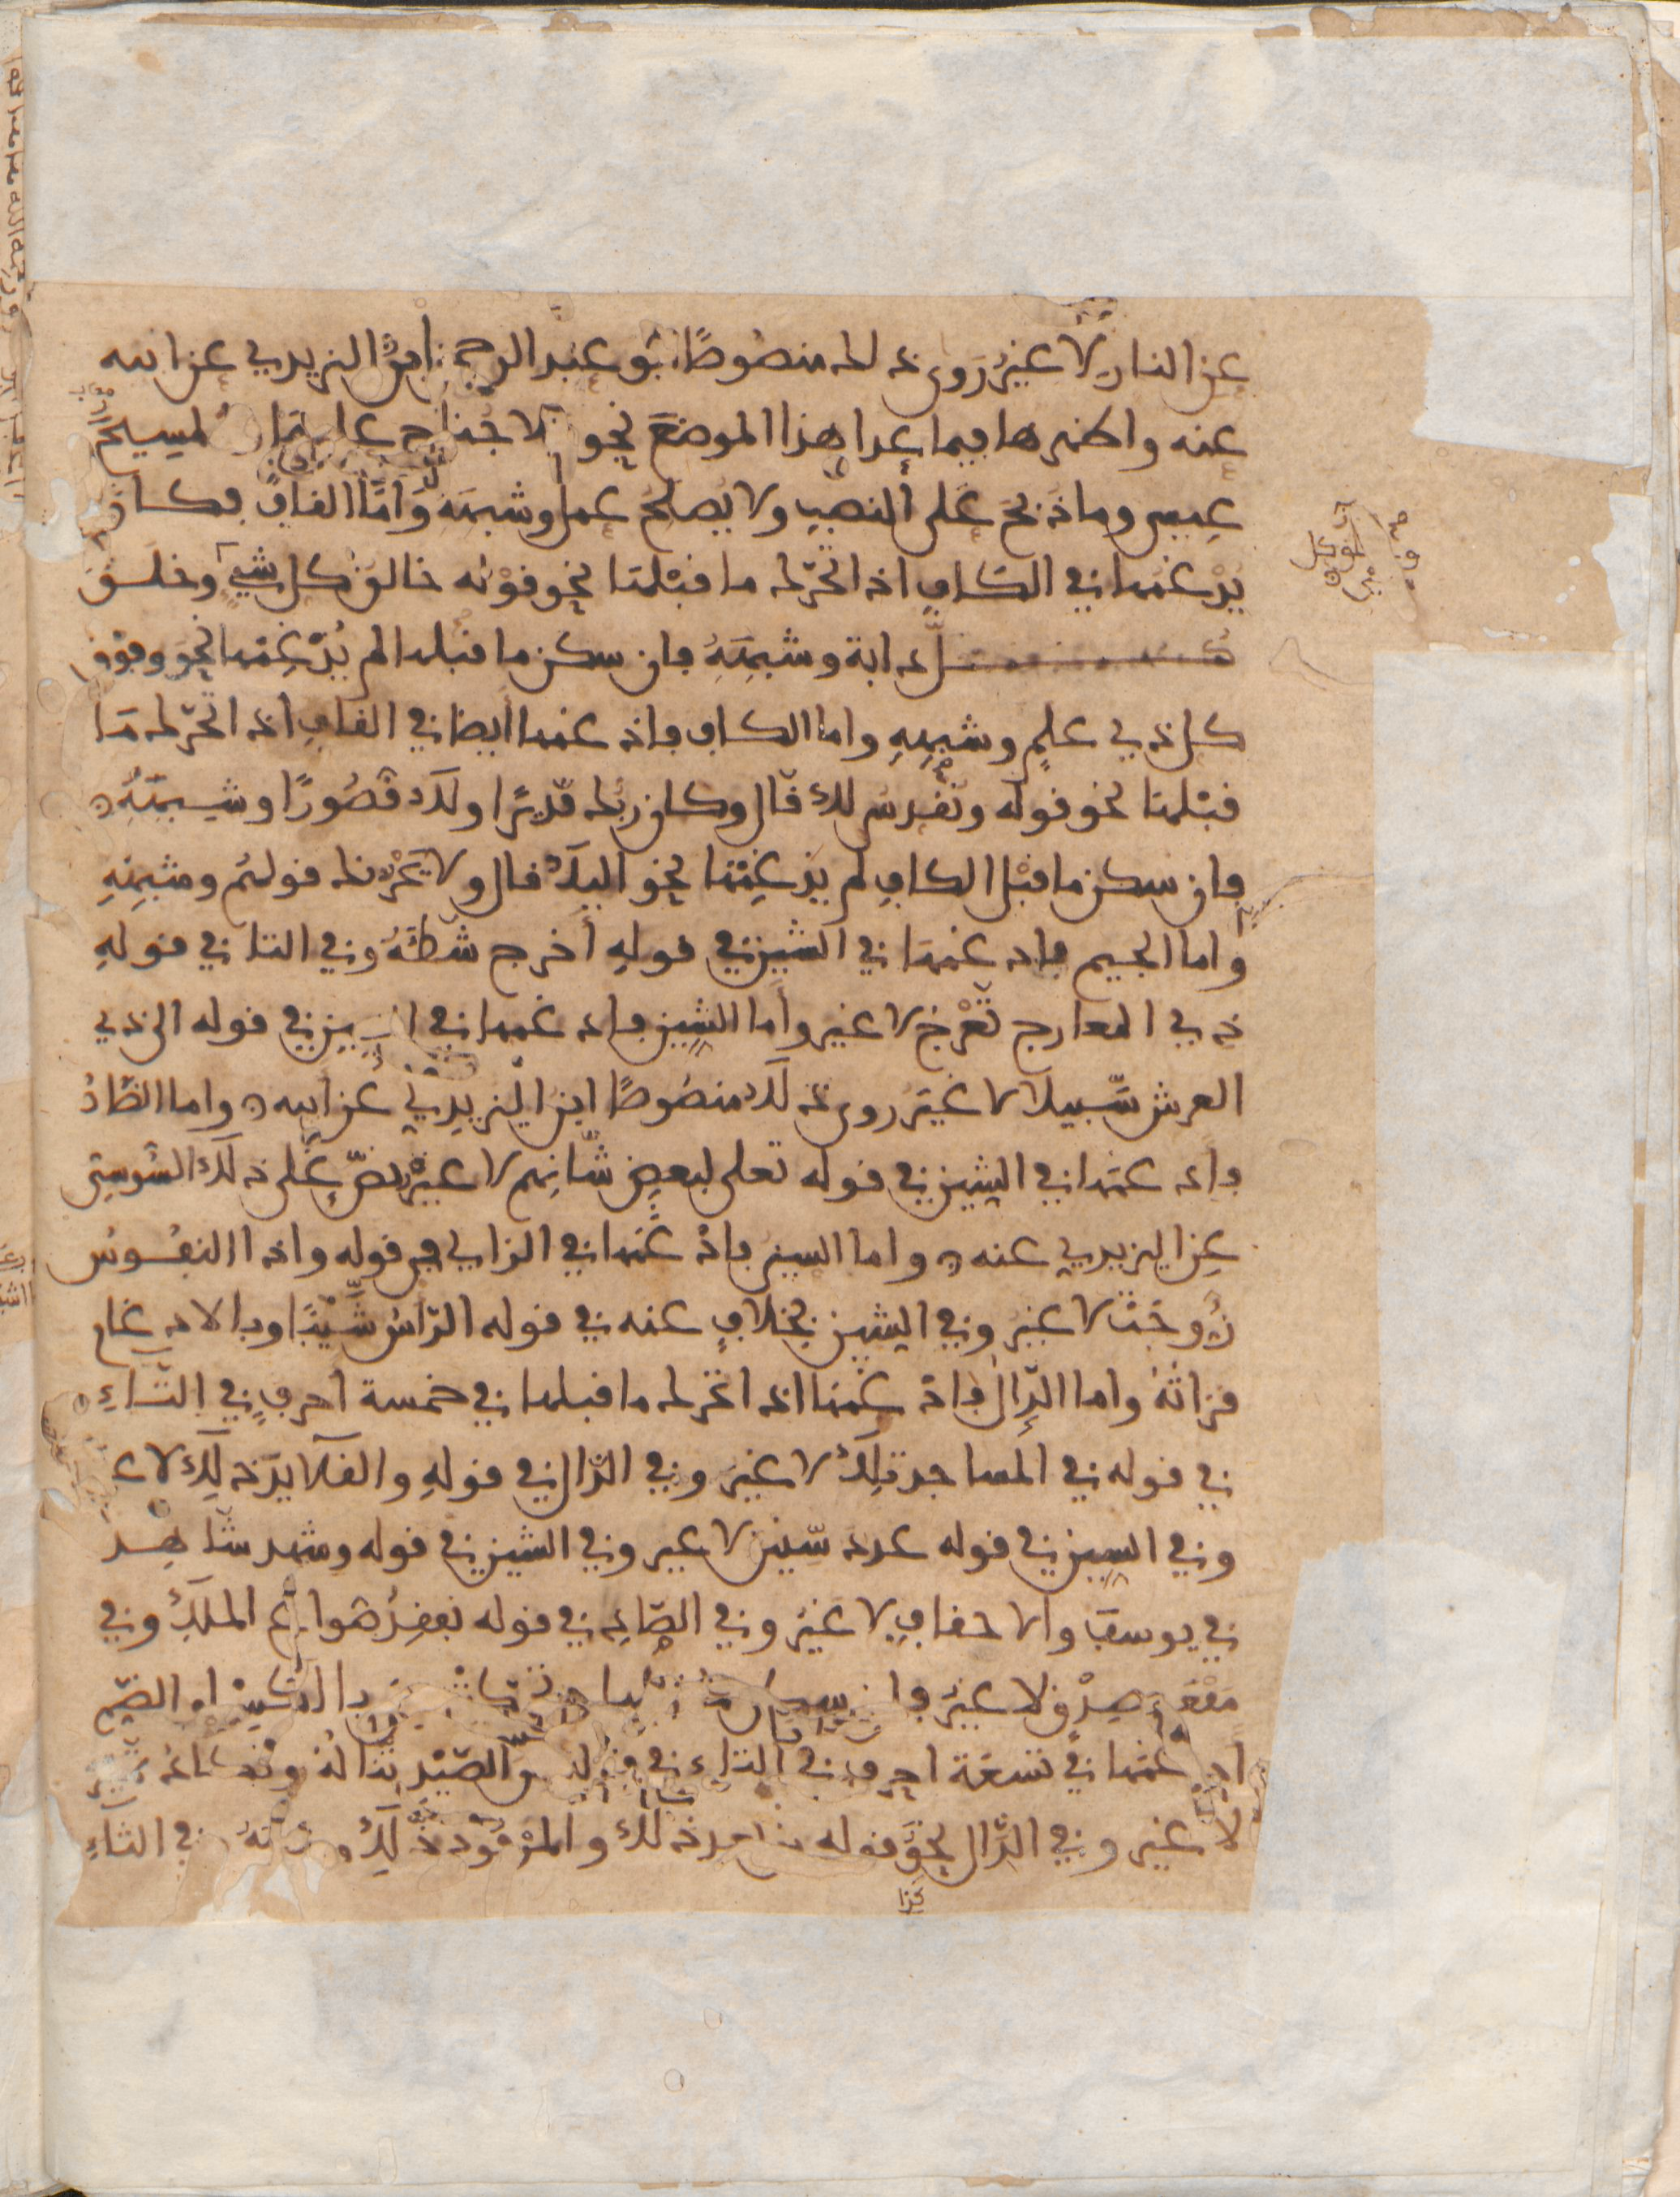 عن النار لا غير روى ذلك منصوصًا أبو عبد الرحمن ابن اليزيدي عن ابيه
عنه واظهرها فيما عدا هذا الموضع نحو لا جناح عليهما المسيح
عيسى وما ذبح على النصب ولا يصلح عمل وشبهه وَأمَّا القاف فكان
يدغمها في الكاف اذا تحرك ما قبلها نحو قوله خالق كل شيء وخلق
كل دابة وشبهه فان سكن ما قبلها لم يُدغمها نحو وفوق
كل ذي علم وشبهه واما الكاف فادغمها ايضا في القاف اذا تحرك مَا
قبلها نحو قوله ونقدس لك قّال وكان ربك قّديرًا ولك قّصُورًا وشبهه
فان سكن ما قبل الكاف لم يدغمها نحو اليك قال ولا يحزنك قولهم وشبهه
واما الجيم فادغمها في الشين في قوله أخرج شّطئَهُ وفي التا في قوله
ذي المعارج تّعرُج لا غير وأما الشين فادغمها في السين في قوله الى ذي
العرش سّبيلا لا غير روى ذلك منصوصًا ابن اليزيدي عن ابيه واما الضَّادُ
فادغمها في الشين في قوله تعلى لبعض شّانهم لا غير نصّ على ذلك السُّوسِي
عن اليزيدي عنه واما السين فادغمها في الزاي في قوله واذا النفُوس
زُّوجَت لا غير وفي الشين بخلاف عنه في قوله الرّاسُ شَّيْبًا وبالادغام
قراتُهُ واما الدّال فادغمها اذا تحرك ما قبلها في خمسة احرف في التَّاءِ
في قوله في المساجد تلك لا غير وفي الذّال في قوله والقلائد ذلك لا غ
وفي السين في قوله عدد سّنين لا غير وفي الشين في قوله وشهد شّاهِد
في يوسف والاحقاف لا غير وفي الصَّاد في قوله نفقِدُ صُّواع الملك وفي
مَقْعَد صِدْقٍ لا غير فان سكن ما قبلها بالكسر او الضَّم
ادغمها في تسعة احرف في التاء في قوله من الصَّيْد تَّنالُهُ وتكاد تَّميز
لا غير وفي الذّال نحو قوله من بعد ذلك والمرفود ذّلِكَ وفي الثاء